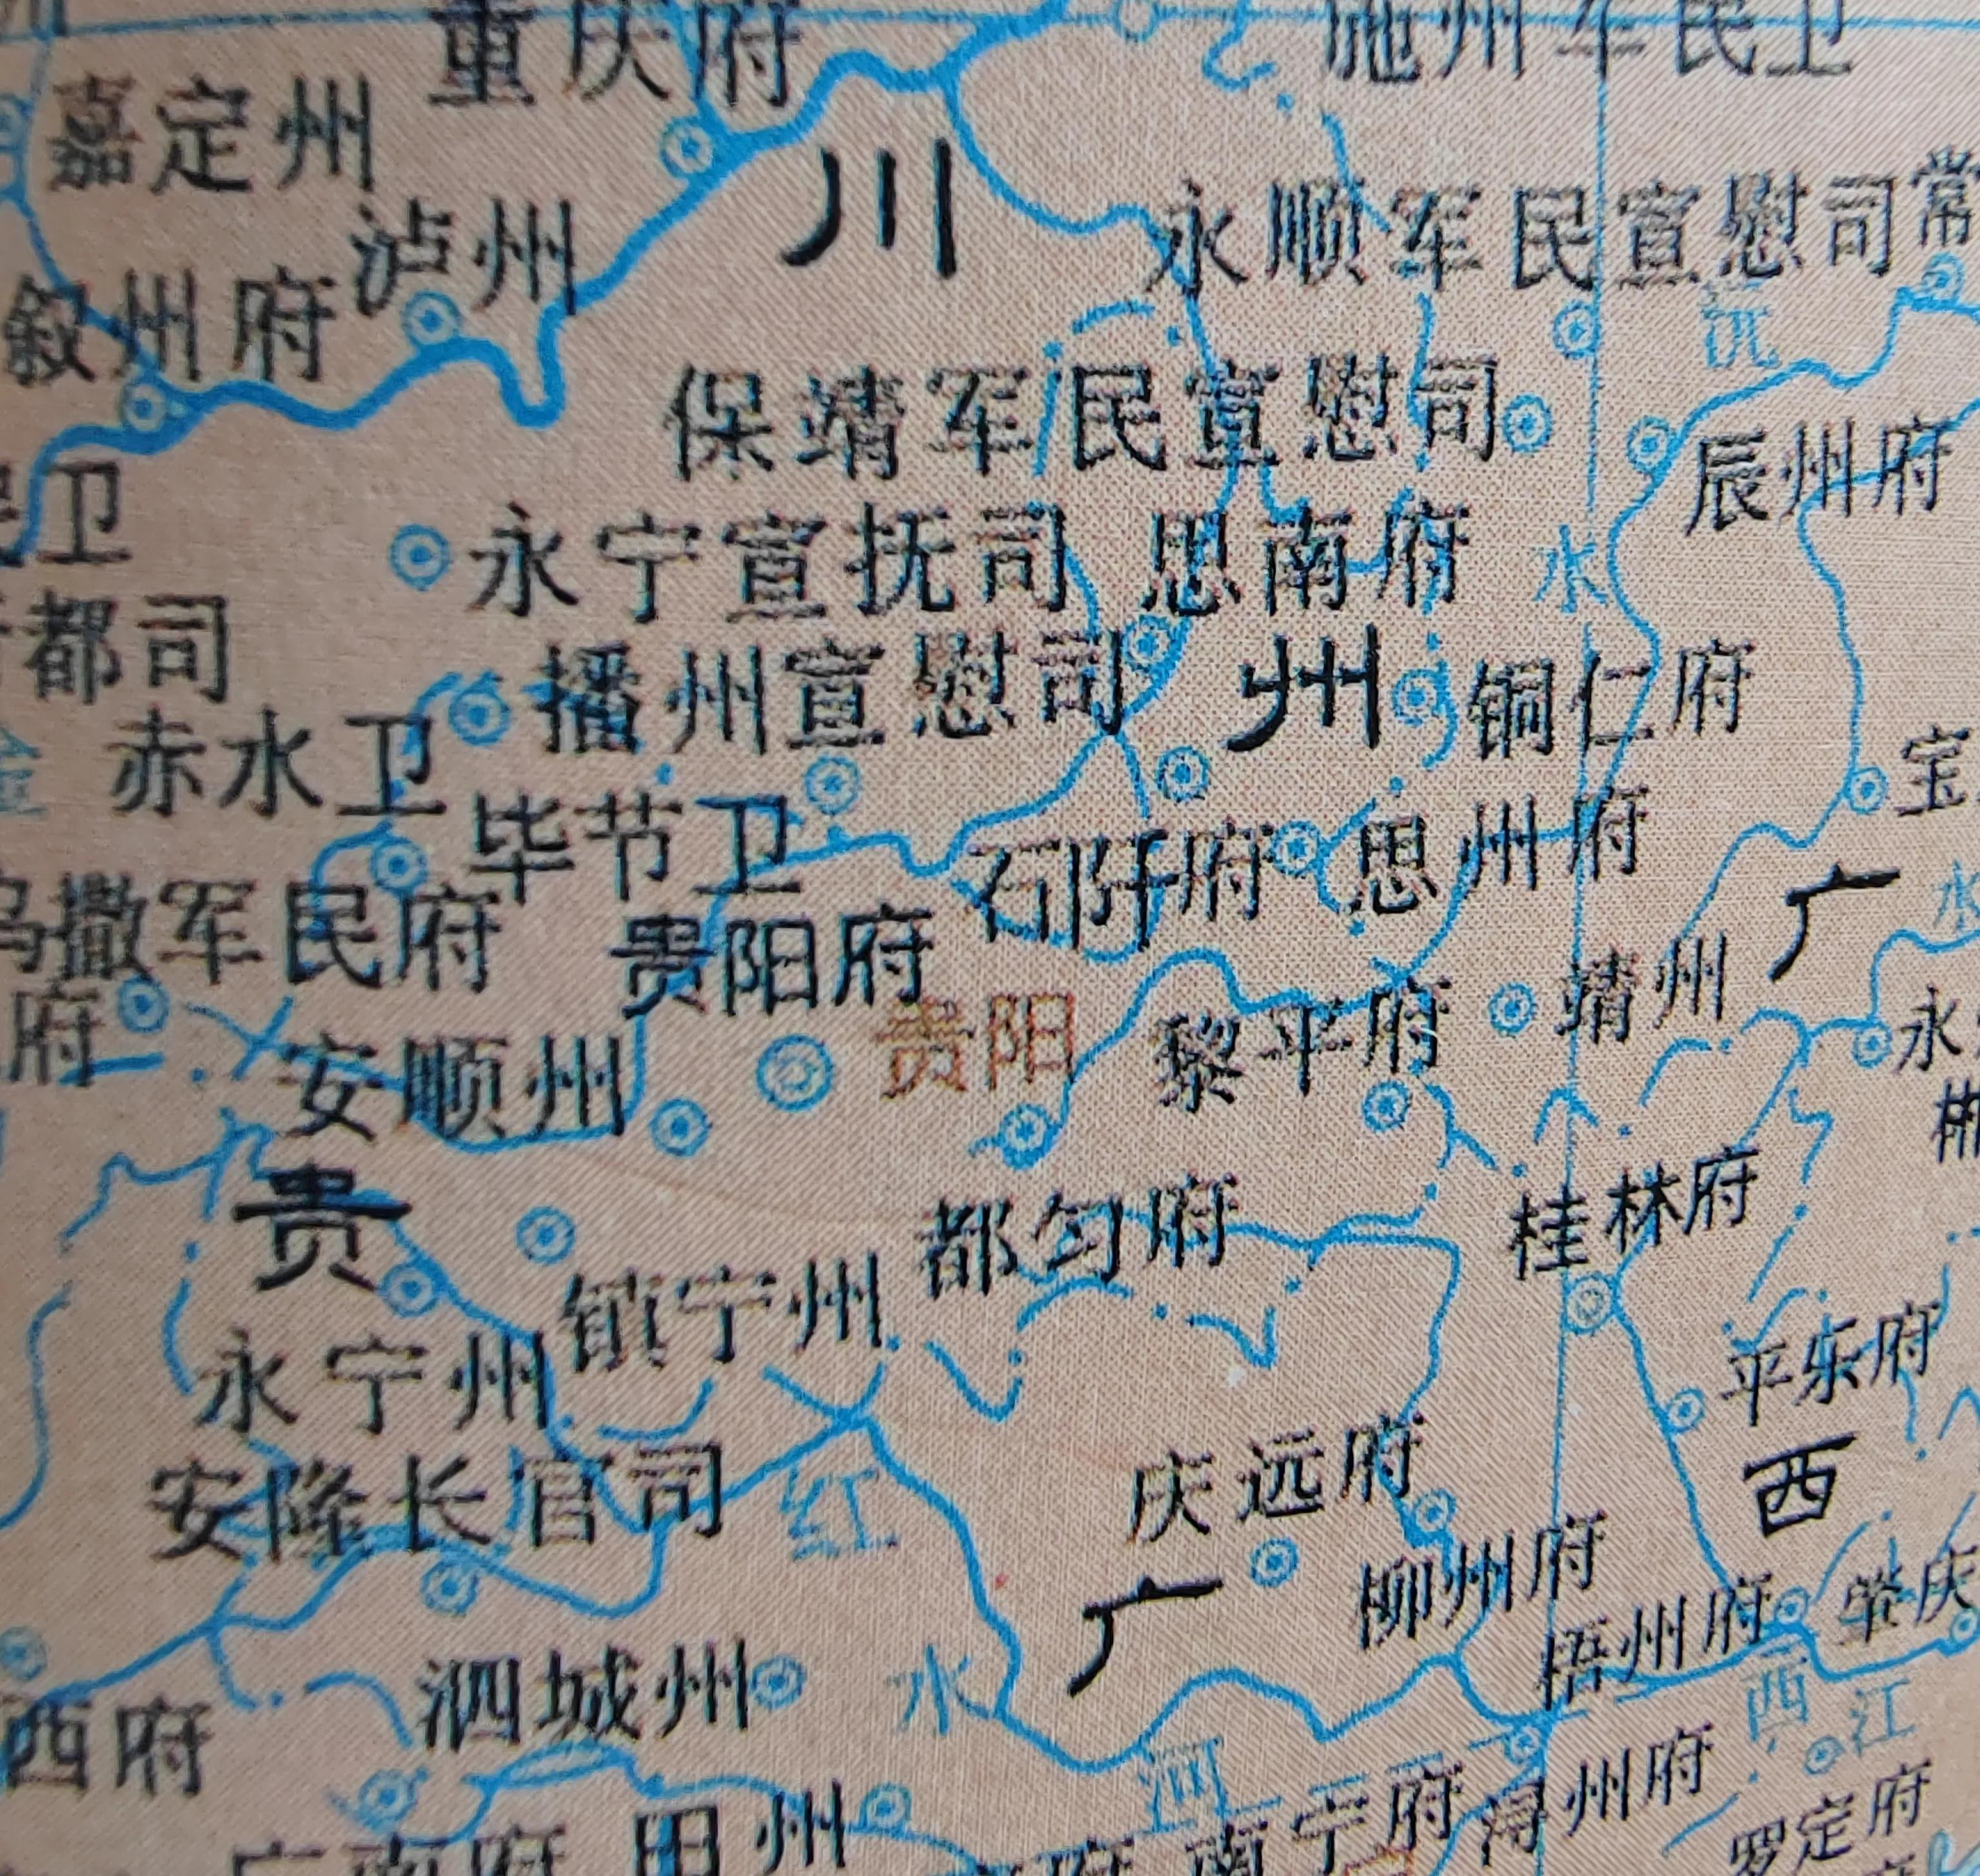 重庆府
施州军民卫
嘉定州
川
泸州
永顺军民宣慰司
常
叙州府
沅
保靖军民宣慰司
辰州府
卫
永宁宣抚司
思南府
水
都司
播州宣慰司
州
铜仁府
赤水卫
宝
毕节卫
石阡府
思州府
乌撒军民府
贵阳府
广
水
府
贵阳
黎平府
靖州
永
安顺州
郴
贵
都匀府
桂林府
镇宁州
永宁州
平乐府
安隆长官司
红
庆远府
西
广
柳州府
梧州府
肇庆
泗城州
水
西江
西府
河
浔州府
田州
府
南宁府
罗定府
广南府